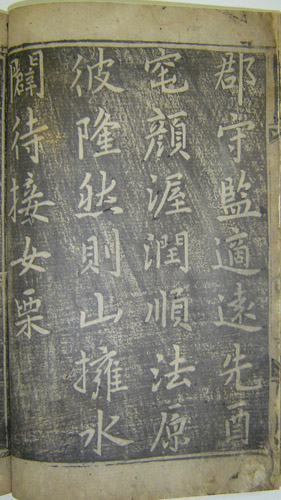 郡守監適遠先酉
宅顔渥潤順法原
彼隆然則山擁水
闢待接女栗